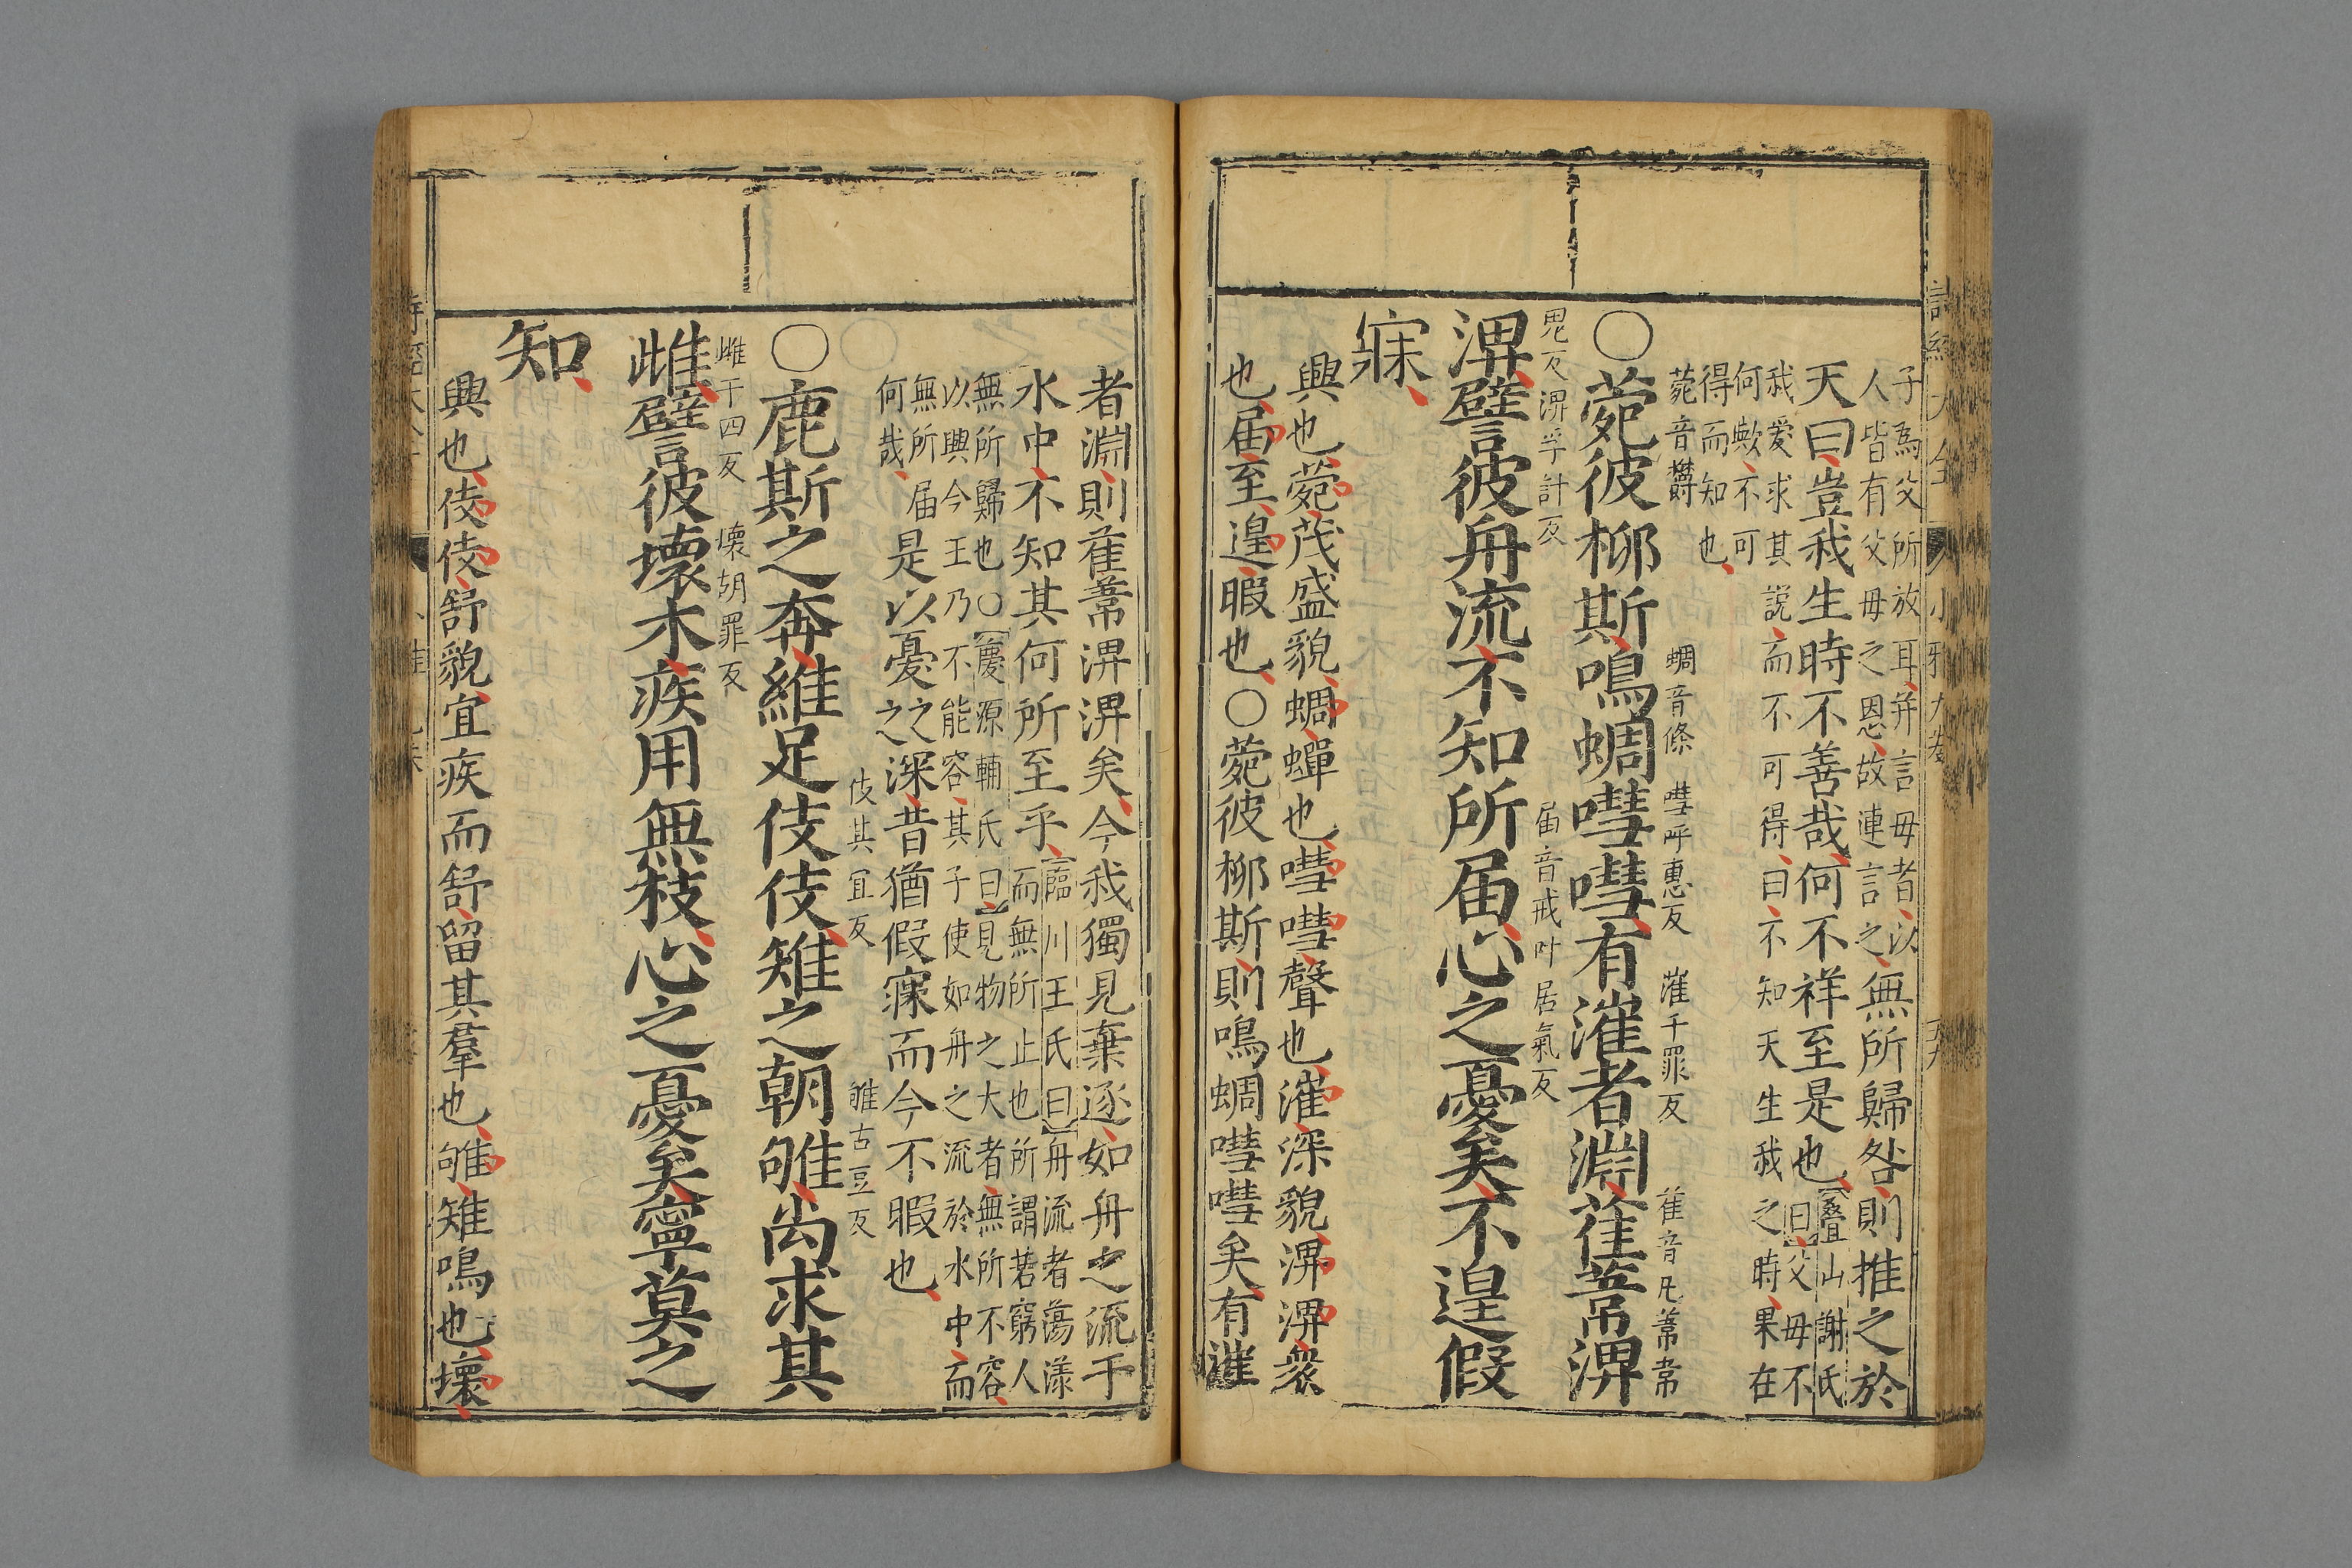 子爲父所放耳并言母者以
人皆有父母之恩故連言之
無所歸咎則推之於
天曰豈我生時不善哉何不祥至是也
疊山謝氏
曰父母不
我愛求其說而不可得曰不知天生我之時果在
何歟不可
得而知也
菀音鬱 蜩音條 嘒呼惠反 漼千罪反 萑音丸葦韋
○菀彼柳斯鳴蜩嘒嘒有漼者淵萑葦淠
鬼反淠孚計反 届音戒叶居氣反
淠譬彼舟流不知所届心之憂矣不遑假
寐
興也菀茂盛貌蜩蟬也嘒嘒聲也漼深貌淠淠衆
也届至遑暇也○菀彼柳斯則鳴蜩嘒嘒矣有漼
者淵則萑葦淠淠矣今我獨見棄逐如舟之流于
水中不知其何所至乎
臨川王氏曰舟流者蕩漾
而無所止也所謂若窮人
無所歸也○慶源輔氏曰見物之大者無所不容
以興今王乃不能容其子使如舟之流於水中而
無所届
何哉
是以憂之之深昔猶假寐而今不暇也
伎其宜反 雊古豆反
○鹿斯之奔維足伎伎雉之朝雊尚求其
雌千四反 壊胡罪反
雌譬彼壞木疾用無枝心之憂矣寧莫之
知
興也伎伎舒貌宜疾而舒留其羣也雊雉鳴也壞